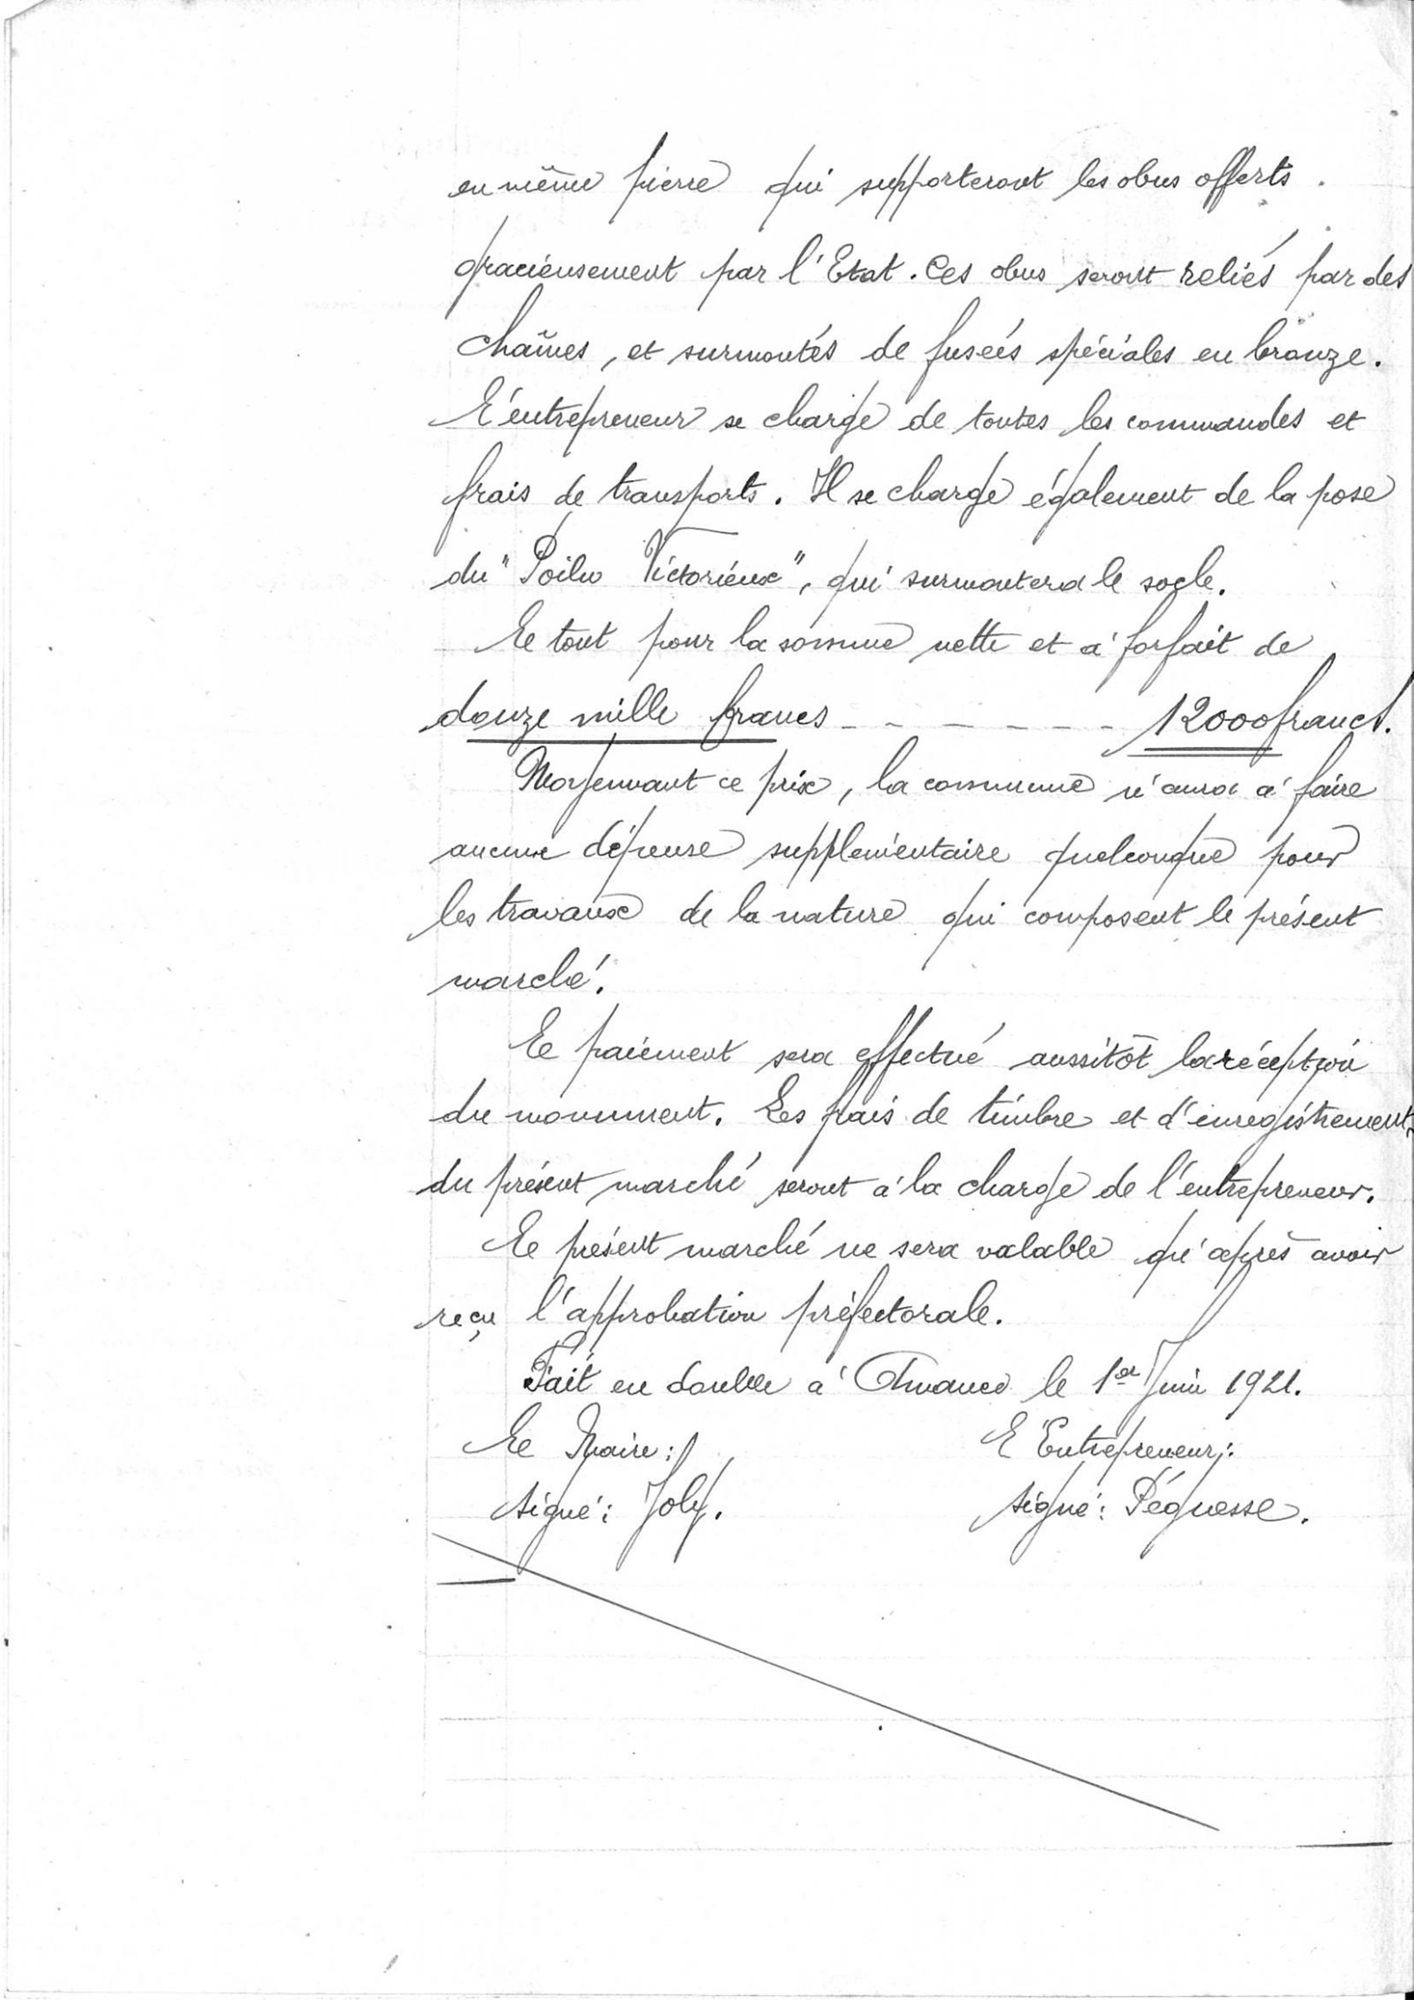 en même pierre qui supporteront les obus offerts
gracieusement par l'Etat. Ces obus seront reliés par des
chaînes, et surmontés de fusées spéciales en bronze.
L'entrepreneur se charge de toutes les commandes et
frais de transports. Il se charge également de la pose
du "Poilu Victorieux", qui surmontera le socle.
Le tout pour la somme nette et à forfait de
douze mille francs _ _ _ _ _ _ _ 12000 francs.
Moyennant ce prix, la commune n'aura à faire
aucune dépense supplémentaire quelconque pour
les travaux de la nature qui composent le présent
marché.
Le paiement sera effectué aussitôt la réception
du monument. Les frais de timbre et d'enregistrement
du présent marché seront à la charge de l'entrepreneur.
Le présent marché ne sera valable qu'après avoir
reçu l'approbation préfectorale.
Fait en double à Amance le 1er Juin 1921.
Le Maire: L'Entrepreneur:
signé: Joly. signé: Péguesse.